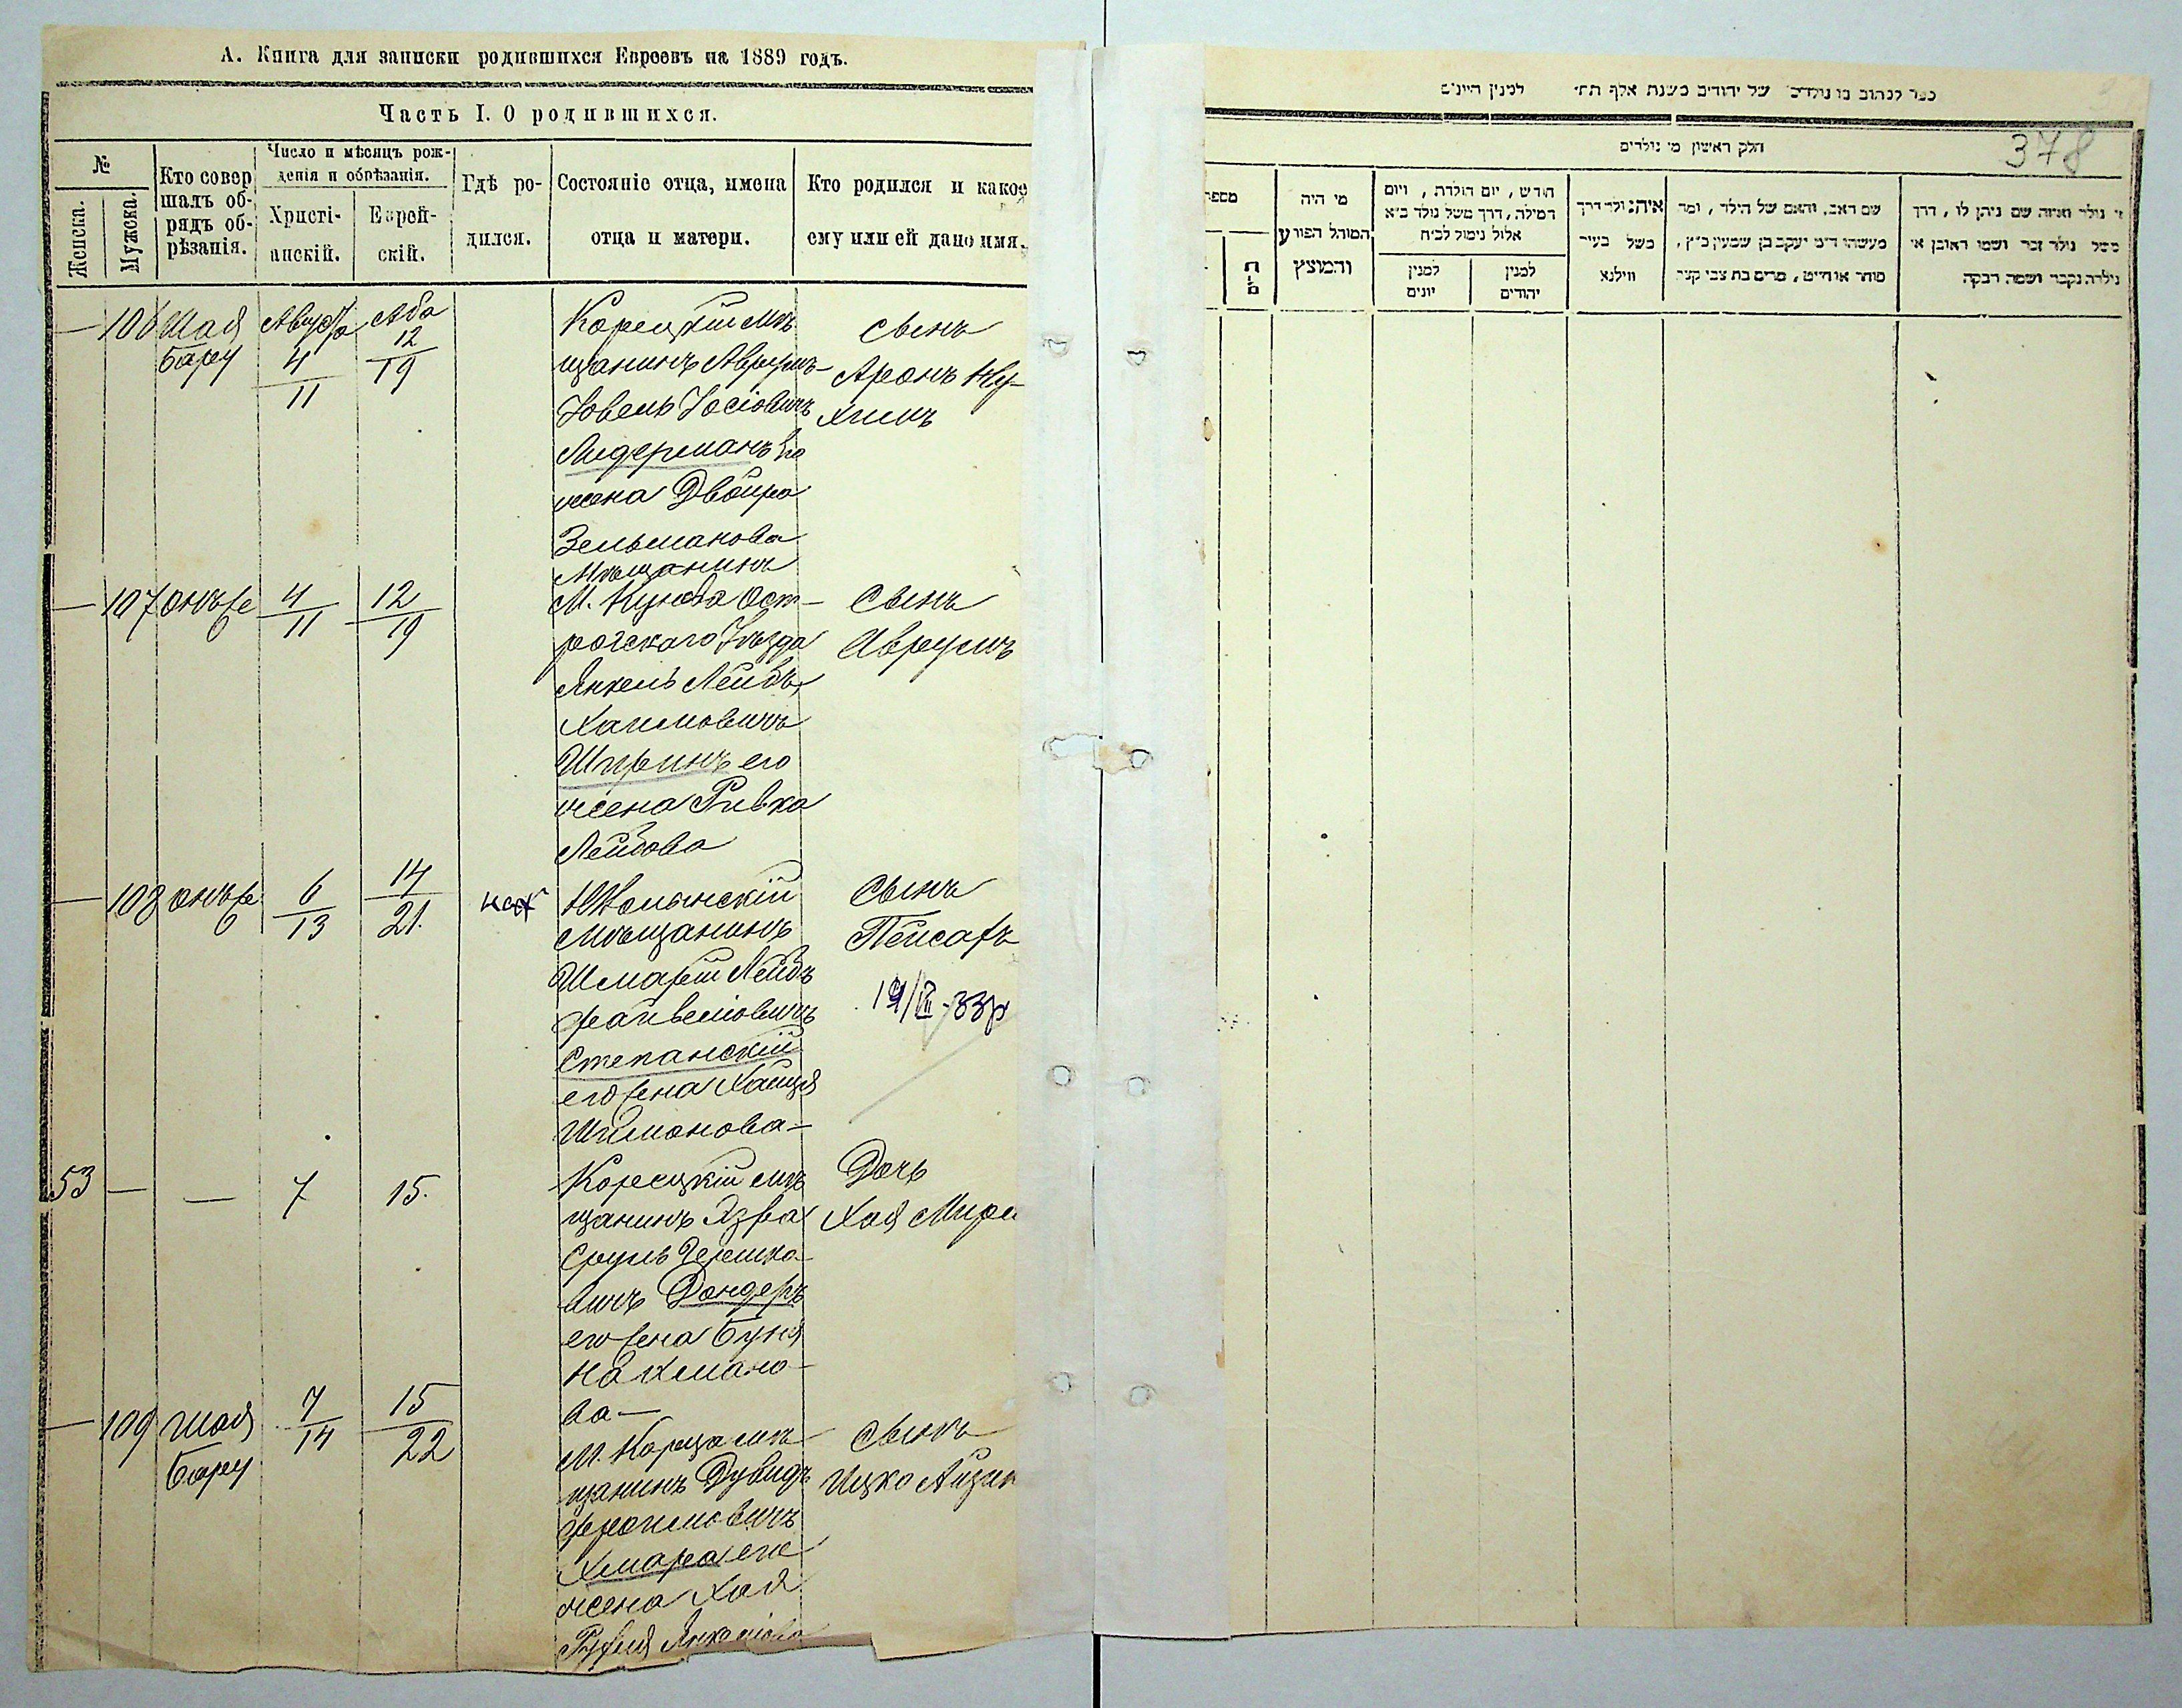 А. Книга для записки родившихся Евреевъ на 1889 годъ.
Часть I. О родившихся.
№
Женска.
Мужска.
Кто совер
шалъ об-
рядъ об-
рѣзанія.
Число и мѣсяцъ рож-
денія и обрѣзанія.
Христі-
анскій.
Еврей-
скій.
Гдѣ ро-
дился.
Состояніе отца, имена
отца и матери.
Кто родился и какое
ему или ей дано имя.
— 106 Шая
Бару
Августа
4
11
Аба
12
19
Корецкій мѣ
щанинъ Аврумъ-
Іовель Іосіовичъ
Лидерманъ его
жена Двойра
Зельманова
сынъ
Аронъ Ну-
химъ
— 107 онъ же
4
11
12
19
Мѣщанинъ
М. Кунева Ост-
рогскаго Уѣзда
Янкель Лейбъ
Хаимовичъ
его
жена Ривка
Лейбова
Сынъ
Аврумъ
— 108 онъ же
6
13
14
21.
мѣщанинъ
Лейбъ
Файвелiовичъ
Степанскій
его жена
Шимонова—
Сынъ
Пейсахъ
53 — —
7
15.
Корецкій мѣ
щанинъ
Сруль Гершко-
вичъ Дондеръ
его жена Буня
Нахмано-
ва—
Дочь
Хая
— 109 Шая
Бару
7
14
15
22
М. Корца мѣ
щанинъ Дувидъ
Фроимовичъ
Хмара его
жена Хая
Рухля Янкелiова
Сынъ
Ицко Айзик
378
חלק ראשון מי נולדים
מספר
מי היה
המוהל הפורע
והמוצץ
חודש, יום הולדת, ויום
המילה, דרך משל נולד ב׳א
אלול נימול לב׳ח
למנין
יונים
למנין
יהודים
איה נולד דרך
משל בעיר
ווילנא
שם האב, והאם של הילד, ומה
מעשהו ד״מ יעקב בן שמעון כ״ץ,
סוחר או חייט, מרים בת צבי קצר
מי נולד ואיזה שם ניתן לו, דרך
משל נולד זכר ושמו ראובן או
נולדה נקבה ושמה רבקה